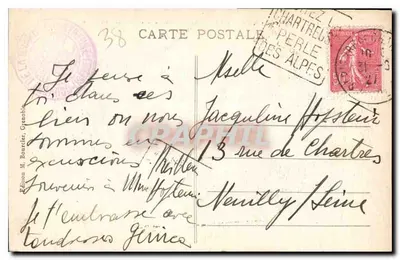 38
CARTE POSTALE
CHARTREUSE
PERLE
DES ALPES
Je pense à
toi dans ces
lieux où nous
sommes en
excursions
Souvenir à Mme Hofstein
Je t'embrasse avec
tendresses
Mselle
Jacqueline Hofstein
13 rue de Chartres
Neuilly / Seine
Editions M. Bourcier, Grenoble
CPHPM